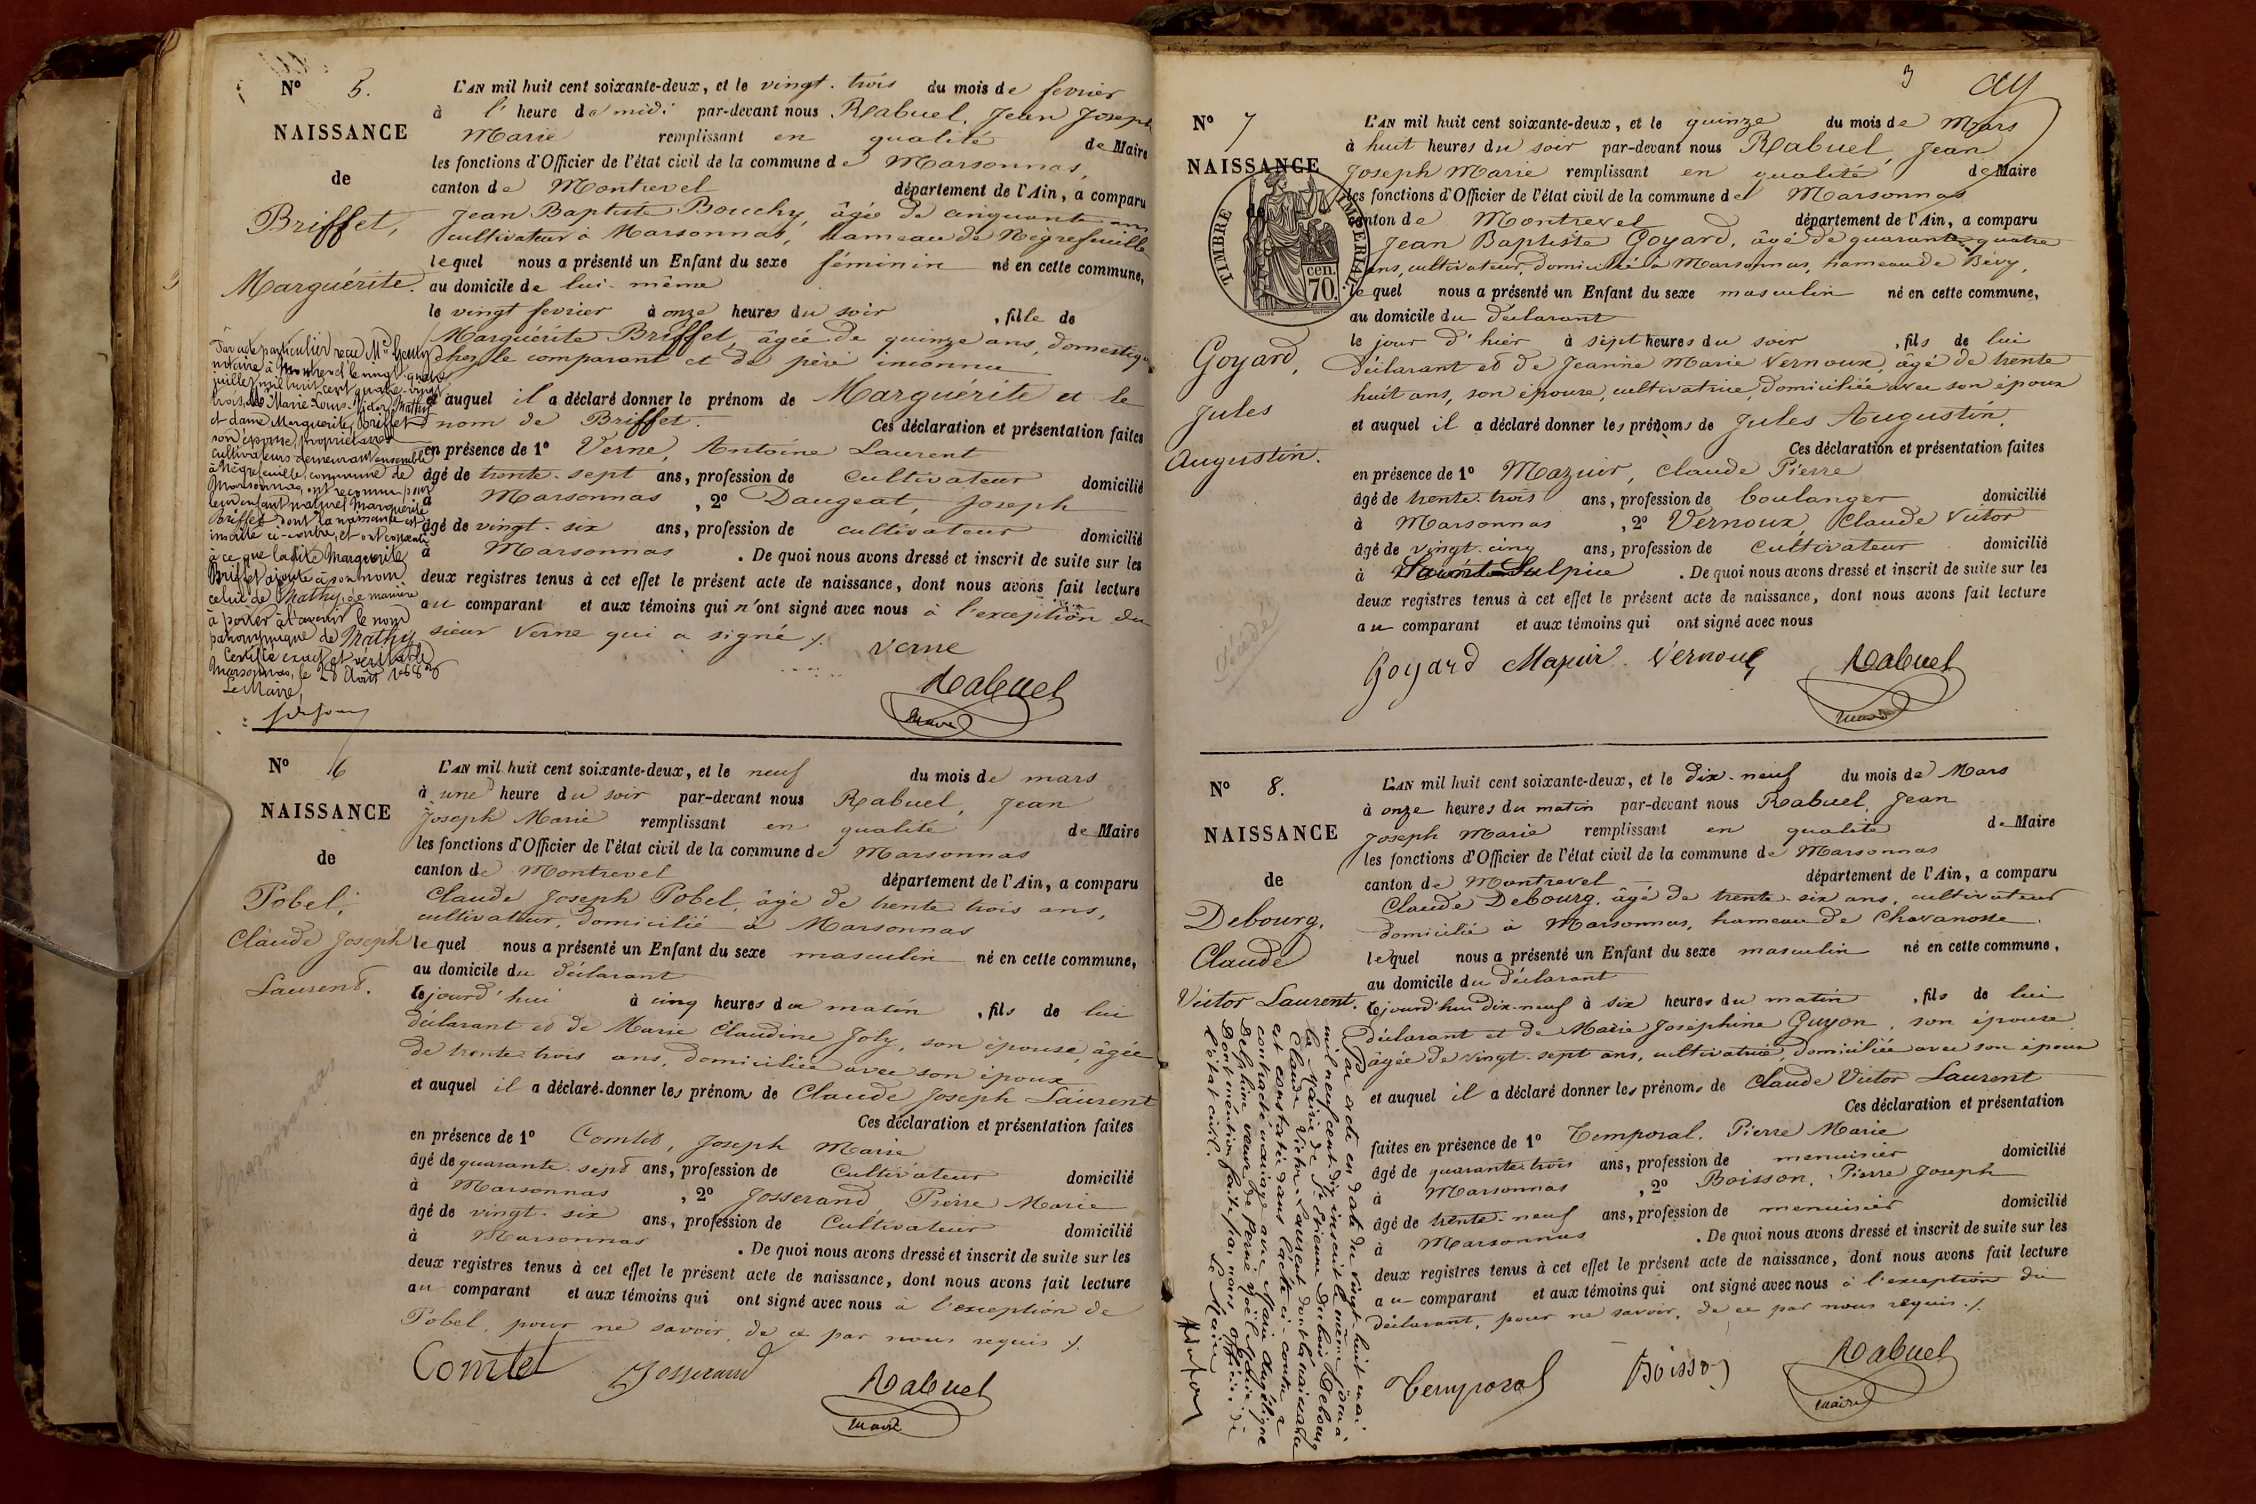 N° 5.
NAISSANCE
de
Briffet,
Marguérite.
L'AN mil huit cent soixante-deux, et le vingt-trois du mois de fevrier
à l'heure de midi par-devant nous Rabuel, Jean Joseph
Marie remplissant en qualité de Maire
les fonctions d'Officier de l'état civil de la commune de Marsonnas,
canton de Montrevel département de l'Ain, a comparu
Jean Baptiste Bouchy, âgé de cinquante ans
cultivateur à Marsonnas, hameau de Nègrefeuille
lequel nous a présenté un Enfant du sexe féminin né en cette commune,
au domicile de lui-même
le vingt fevrier à onze heures du soir, fille de
Marguérite Briffet, âgée de quinze ans, domestique
chez le comparant et de père inconnu
et auquel il a déclaré donner le prénom de Marguérite et le
nom de Briffet. Ces déclaration et présentation faites
en présence de 1° Verne, Antoine Laurent
âgé de trente-sept ans, profession de cultivateur domicilié
à Marsonnas, 2° Daugeat, Joseph
âgé de vingt-six ans, profession de cultivateur domicilié
à Marsonnas. De quoi nous avons dressé et inscrit de suite sur les
deux registres tenus à cet effet le présent acte de naissance, dont nous avons fait lecture
au comparant et aux témoins qui n'ont signé avec nous à l'exception du
sieur Verne qui a signé ./.
Verne
Rabuel
maire
Par acte particulier reçu Me
notaire à Montrevel le vingt-quatre
juillet mil huit cent quatre-vingt
trois, Marie Louis Victor Mathy
et dame Marguerite Briffet
son épouse, propriétaires
cultivateurs demeurant ensemble
à Nègrefeuille, commune de
Marsonnas, ont reconnu pour
leur enfant naturel Marguérite
Briffet dont la naissance est
inscrite ci-contre, et ont consenti
à ce que ladite Marguerite
Briffet ajoute à son nom
celui de Mathy, de manière
à porter à l'avenir le nom
patronymique de Mathy
Certifié exact et véritable
Marsonnas, le 28 Août
Le Maire,
N° 6
NAISSANCE
de
Pobel,
Claude Joseph
Laurent.
L'AN mil huit cent soixante-deux, et le neuf du mois de mars
à une heure du soir par-devant nous Rabuel, Jean
Joseph Marie remplissant en qualité de Maire
les fonctions d'Officier de l'état civil de la commune de Marsonnas
canton de Montrevel département de l'Ain, a comparu
Claude Joseph Pobel, âgé de trente trois ans,
cultivateur, domicilié à Marsonnas
lequel nous a présenté un Enfant du sexe masculin né en cette commune,
au domicile du déclarant
cejourd'hui à cinq heures du matin, fils de lui
déclarant et de Marie Claudine Joly, son épouse, âgée
de trente-trois ans, domiciliée avec son époux
et auquel il a déclaré donner les prénoms de Claude Joseph Laurent
Ces déclaration et présentation faites
en présence de 1° Comtet, Joseph Marie
âgé de quarante-sept ans, profession de Cultivateur domicilié
à Marsonnas, 2° Josserand Pierre Marie
âgé de vingt-six ans, profession de Cultivateur domicilié
à Marsonnas. De quoi nous avons dressé et inscrit de suite sur les
deux registres tenus à cet effet le présent acte de naissance, dont nous avons fait lecture
au comparant et aux témoins qui ont signé avec nous à l'exception de
Pobel, pour ne savoir, de ce par nous requis ./.
Comtet Josserand
Rabuel
maire
3
N° 7
NAISSANCE
de
TIMBRE IMPERIAL
70 cen.
Goyard,
Jules
Augustin.
L'AN mil huit cent soixante-deux, et le quinze du mois de Mars
à huit heures du soir par-devant nous Rabuel, Jean
Joseph Marie remplissant en qualité de Maire
les fonctions d'Officier de l'état civil de la commune de Marsonnas
canton de Montrevel département de l'Ain, a comparu
Jean Baptiste Goyard, âgé de quarante-quatre
ans, cultivateur, domicilié à Marsonnas, hameau de Bévy,
lequel nous a présenté un Enfant du sexe masculin né en cette commune,
au domicile du déclarant
le jour d'hier à sept heures du soir, fils de lui
déclarant et de Jeanne Marie Vernoux, âgé de trente
huit ans, son épouse, cultivatrice, domiciliée avec son époux
et auquel il a déclaré donner les prénoms de Jules Augustin.
Ces déclaration et présentation faites
en présence de 1° Mazuir, Claude Pierre
âgé de trente-trois ans, profession de boulanger domicilié
à Marsonnas, 2° Vernoux, Claude Victor
âgé de vingt-cinq ans, profession de Cultivateur domicilié
à Saint Sulpice. De quoi nous avons dressé et inscrit de suite sur les
deux registres tenus à cet effet le présent acte de naissance, dont nous avons fait lecture
au comparant et aux témoins qui ont signé avec nous
Goyard Mazuir Vernoux Rabuel
maire
N° 8.
NAISSANCE
de
Debourg,
Claude
Victor Laurent.
L'AN mil huit cent soixante-deux, et le dix-neuf du mois de Mars
à onze heures du matin par-devant nous Rabuel, Jean
Joseph Marie remplissant en qualité de Maire
les fonctions d'Officier de l'état civil de la commune de Marsonnas
canton de Montrevel département de l'Ain, a comparu
Claude Debourg, âgé de trente-six ans, cultivateur
domicilié à Marsonnas, hameau de Chavanosse.
lequel nous a présenté un Enfant du sexe masculin né en cette commune,
au domicile du déclarant
cejourd'hui dix-neuf à six heures du matin, fils de lui
déclarant et de Marie Joséphine Guyon, son épouse
âgée de vingt-sept ans, cultivatrice, domiciliée avec son époux
et auquel il a déclaré donner les prénoms de Claude Victor Laurent
Ces déclaration et présentation
faites en présence de 1° Temporal, Pierre Marie
âgé de quarante trois ans, profession de menuisier domicilié
à Marsonnas, 2° Boisson, Pierre Joseph
âgé de trente-neuf ans, profession de menuisier domicilié
à Marsonnas. De quoi nous avons dressé et inscrit de suite sur les
deux registres tenus à cet effet le présent acte de naissance, dont nous avons fait lecture
au comparant et aux témoins qui ont signé avec nous à l'exception du
déclarant, pour ne savoir, de ce par nous requis ./.
Temporal Boisson Rabuel
maire
Par acte en date du vingt-huit mai
mil neuf cent dix inscrit le même jour à
la Mairie de St Etienne du bois Debourg
Claude Victor Laurent dont la naissance
est constatée dans l'acte ci-contre a
contracté mariage avec Marie Angéligne
Delphine veuve de
Dont mention faite par nous officier de
l'état civil. Le Maire